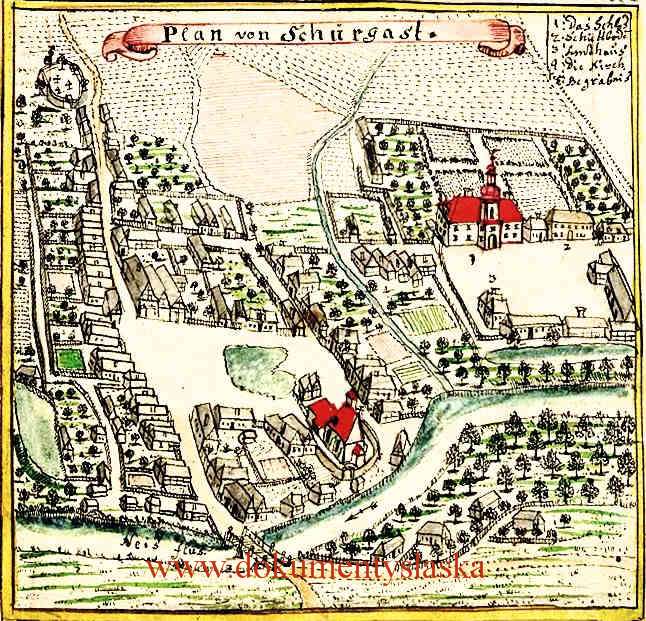 Plan von Schurgast.
1. Das Schl
2. Schüttbode
3 Amdthaus
4 Die Kirch
5. Begrabnis
1
2
3
Neis Flus
www.dokumentyslaska